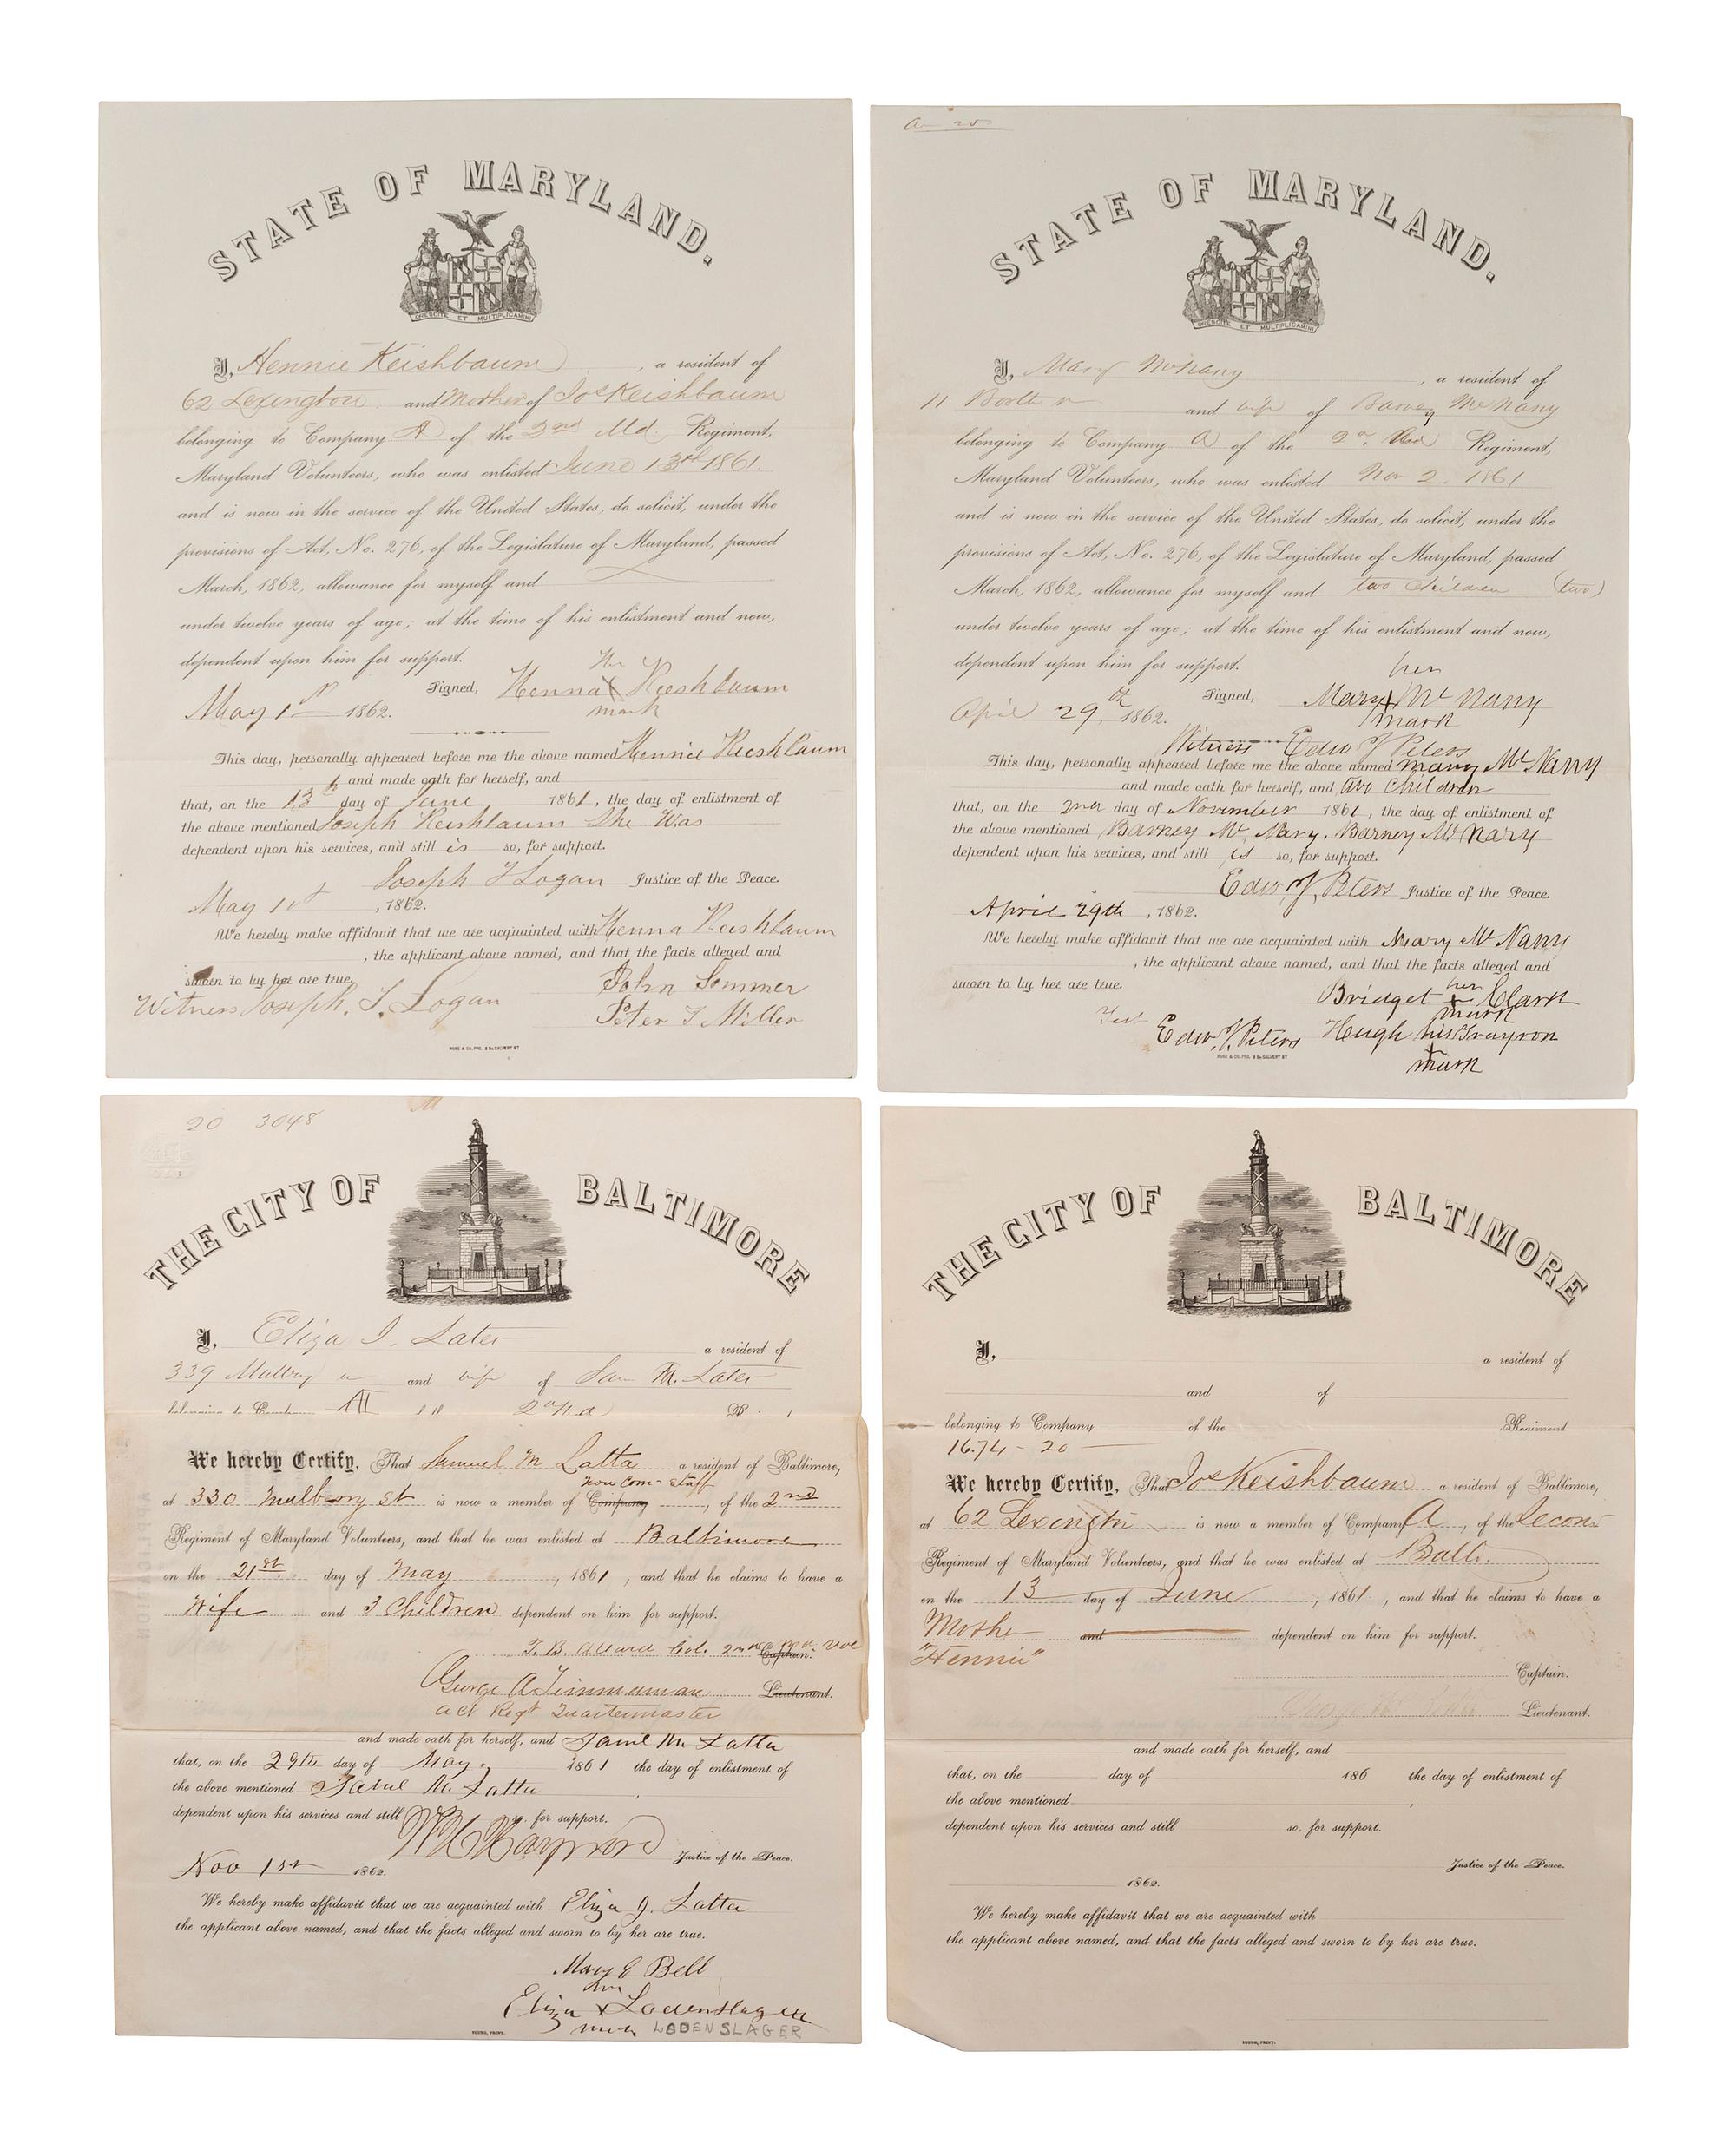 STATE OF MARYLAND.
CRESCITE ET MULTIPLICAMINI
I, Hennie Keishbaum, a resident of
62 Lexington and Mother of Jos Keishbaum
belonging to Company A of the 2nd Md. Regiment,
Maryland Volunteers, who was enlisted June 13th 1861
and is now in the service of the United States, do solicit, under the
provisions of Act, No. 276, of the Legislature of Maryland, passed
March, 1862, allowance for myself and
under twelve years of age; at the time of his enlistment and now,
dependent upon him for support.
Her
Signed, Henna X Keeshbaum
mark
May 1st 1862.
This day, personally appeared before me the above named Hennie Keeshbaum
and made oath for herself, and
that, on the 13th day of June 1861, the day of enlistment of
the above mentioned Joseph Keishbaum She Was
dependent upon his services, and still is so, for support.
Joseph T Logan Justice of the Peace.
May 1st, 1862.
We hereby make affidavit that we are acquainted with Henna Keishbaum
, the applicant above named, and that the facts alleged and
sworn to by her are true.
John Sommer
Witness Joseph. T. Logan
Peter T Miller
STATE OF MARYLAND.
CRESCITE ET MULTIPLICAMINI
I, Mary McNany, a resident of
11 Booth and wife of Barney McNany
belonging to Company A of the 2nd Regiment,
Maryland Volunteers, who was enlisted Nov 2. 1861
and is now in the service of the United States, do solicit, under the
provisions of Act, No. 276, of the Legislature of Maryland, passed
March, 1862, allowance for myself and two children (two)
under twelve years of age; at the time of his enlistment and now,
dependent upon him for support.
her
Signed, Mary X McNany
mark
April 29th, 1862.
Witness Edw J Peters
This day, personally appeared before me the above named Mary McNany
and made oath for herself, and two Children
that, on the 2nd day of November 1861, the day of enlistment of
the above mentioned Barney McNary, Barney McNary
dependent upon his services, and still is so, for support.
Edw J, Peters Justice of the Peace.
April 29th, 1862.
We hereby make affidavit that we are acquainted with Mary McNany
, the applicant above named, and that the facts alleged and
sworn to by her are true.
her
Bridget + Clark
mark
Test Edw J, Peters Hugh his Grayson
+
mark
20 3048
THE CITY OF BALTIMORE
I, Eliza J. Later a resident of
339 Mulbry and wife of Sam M. Later
We hereby Certify, That Samuel M Latta a resident of Baltimore,
non Com- Staff
at 330 Mulberry St is now a member of Company, of the 2nd
Regiment of Maryland Volunteers, and that he was enlisted at Baltimore
on the 21st day of May, 1861, and that he claims to have a
Wife and 3 Children dependent on him for support.
Col. 2nd Captain.
George A Timmerman Lieutenant.
act Regt Quartermaster
and made oath for herself, and Saml M. Latta
that, on the 29th day of May, 1861 the day of enlistment of
the above mentioned Saml M. Latta
dependent upon his services and still so. for support.
Justice of the Peace.
Nov 1st 1862.
We hereby make affidavit that we are acquainted with Eliza J. Latta
the applicant above named, and that the facts alleged and sworn to by her are true.
Mary E Bell
her
Eliza X Lodenslager
mark LODENSLAGER
YOUNG, PRINT.
THE CITY OF BALTIMORE
I, a resident of
and of
belonging to Company of the Regiment
16.74 - 20
We hereby Certify, That Jos Keishbaum a resident of Baltimore,
at 62 Lexington is now a member of Company A, of the Second
Regiment of Maryland Volunteers, and that he was enlisted at Balt.
on the 13 day of June, 1861, and that he claims to have a
Mothe and dependent on him for support.
"Hennie"
Captain.
Lieutenant.
and made oath for herself, and
that, on the day of 186 the day of enlistment of
the above mentioned,
dependent upon his services and still so. for support.
Justice of the Peace.
1862.
We hereby make affidavit that we are acquainted with
the applicant above named, and that the facts alleged and sworn to by her are true.
YOUNG, PRINT.